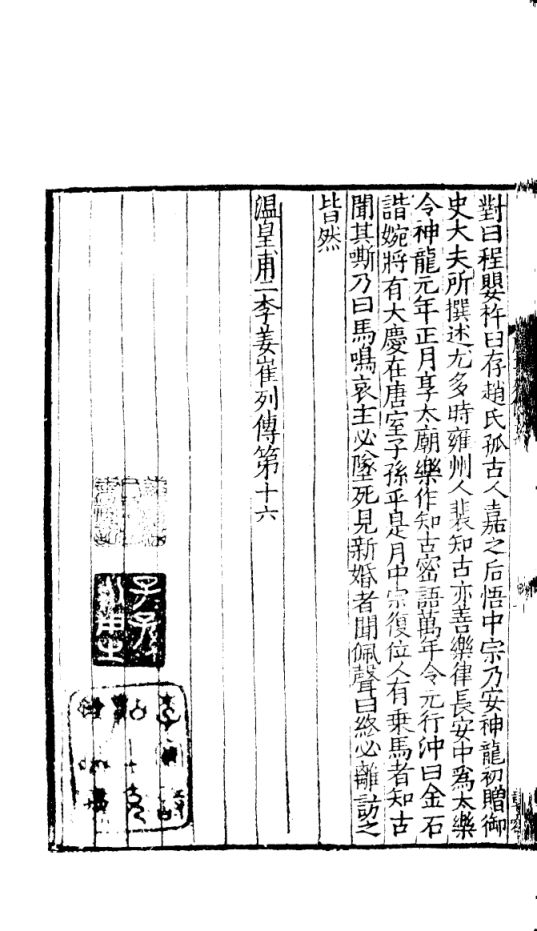 對曰程嬰杵臼存趙氏孤古人嘉之后悟中宗乃安神龍初贈御
史大夫所撰述尤多時雍州人裴知古亦善樂律長安中爲太樂
令神龍元年正月享太廟樂作知古密語萬年令元行沖曰金石
諧婉將有大慶在唐室子孫乎是月中宗復位人有乗馬者知古
聞其嘶乃曰馬鳴哀主必墜死見新婚者聞佩聲曰終必離訪之
皆然
温皇甫二李姜崔列傳第十六